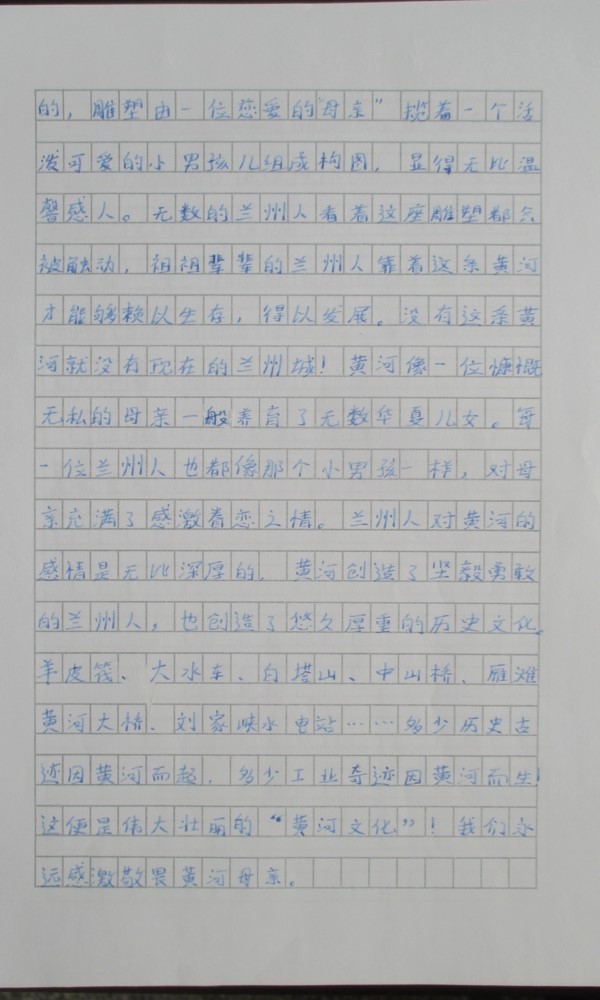 的，雕塑由一位慈爱的“母亲”揽着一个活
泼可爱的小男孩儿组成构图，显得无比温
馨感人。无数的兰州人看着这座雕塑都会
被触动，祖祖辈辈的兰州人靠着这条黄河
才能够赖以生存，得以发展。没有这条黄
河就没有现在的兰州城！黄河像一位慷慨
无私的母亲一般养育了无数华夏儿女。每
一位兰州人也都像那个小男孩一样，对母
亲充满了感激眷恋之情。兰州人对黄河的
感情是无比深厚的，黄河创造了坚毅勇敢
的兰州人，也创造了悠久厚重的历史文化。
羊皮筏、大水车、白塔山、中山桥、雁滩
黄河大桥、刘家峡水电站……多少历史古
迹因黄河而起，多少工业奇迹因黄河而生！
这便是伟大壮丽的“黄河文化”！我们永
远感激敬畏黄河母亲。